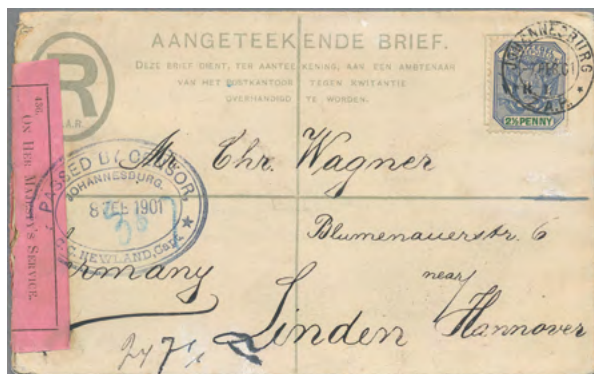 AANGETEEKENDE BRIEF.
DEZE BRIEF DIENT, TER AANTEEKENING, AAN EEN AMBTENAAR
VAN HET POSTKANTOOR TEGEN KWITANTIE
OVERHANDIGD TE WORDEN.
R
A.R.
JOHANNESBURG
2½ PENNY
436.
ON HER MAJESTY'S SERVICE.
PASSED BY CENSOR,
JOHANNESBURG.
8 FEB 1901
NEWLAND, Capt.
Mr. Chr. Wagner
Blumenauerstr. 6
Germany
near
Linden Hannover